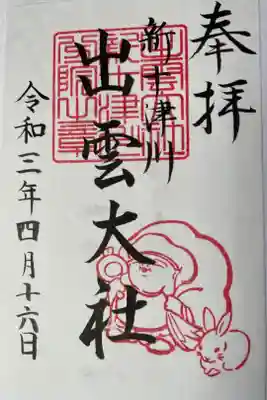 奉拝
新十津川
出雲大社
令和三年四月十六日